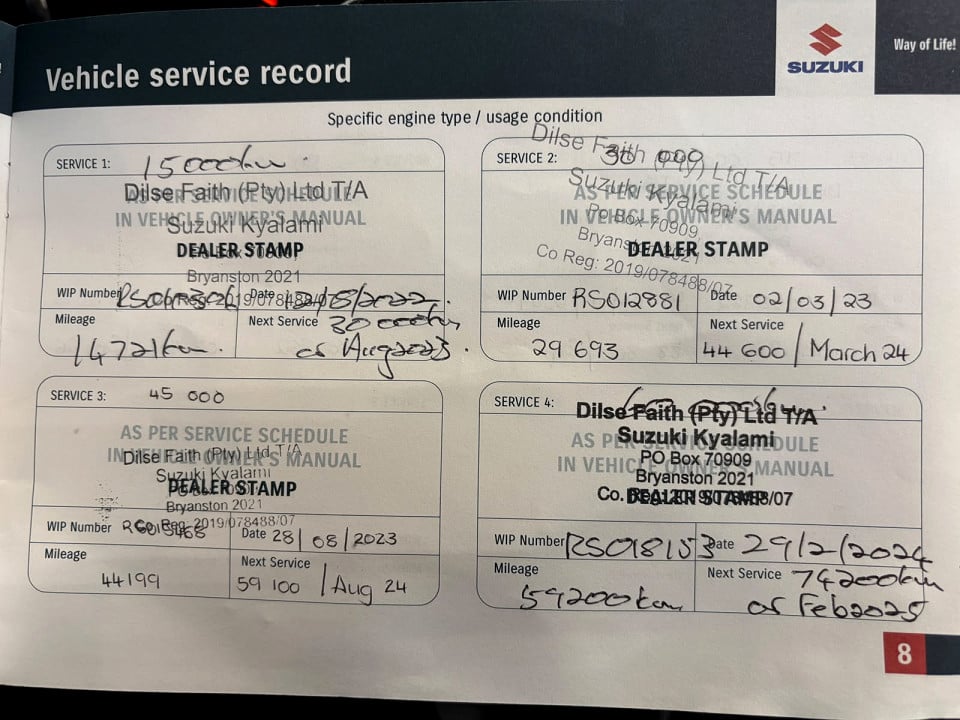 Vehicle service record
SUZUKI
Way of Life!
Specific engine type / usage condition
SERVICE 1: 15000km.
Dilse Faith (Pty) Ltd T/A
AS PER SERVICE SCHEDULE
IN VEHICLE OWNER'S MANUAL
Suzuki Kyalami
DEALER STAMP
PO Box 70909
Bryanston 2021
Co Reg: 2019/078488/07
WIP Number
Date 12/8/2022.
Mileage
14721km.
Next Service 30 000km
or Aug 2023.
SERVICE 2: 30 000
Dilse Faith (Pty) Ltd T/A
AS PER SERVICE SCHEDULE
Suzuki Kyalami
IN VEHICLE OWNER'S MANUAL
PO Box 70909
DEALER STAMP
Bryanston 2021
Co Reg: 2019/078488/07
WIP Number RS012881
Date 02/03/23
Mileage
29 693
Next Service
44 600 / March 24
SERVICE 3: 45 000
AS PER SERVICE SCHEDULE
Dilse Faith (Pty) Ltd T/A
IN VEHICLE OWNER'S MANUAL
Suzuki Kyalami
DEALER STAMP
PO Box 70909
Bryanston 2021
Co Reg: 2019/078488/07
WIP Number
Date 28/08/2023
Mileage
44199
Next Service
59 100 / Aug 24
SERVICE 4:
Dilse Faith (Pty) Ltd T/A
Suzuki Kyalami
AS PER SERVICE SCHEDULE
PO Box 70909
IN VEHICLE OWNER'S MANUAL
Bryanston 2021
Co. Reg: 2019/078488/07
DEALER STAMP
WIP Number RS018153
Date 29/2/2024
Mileage
59200km
Next Service 74200km
or Feb 2025
8